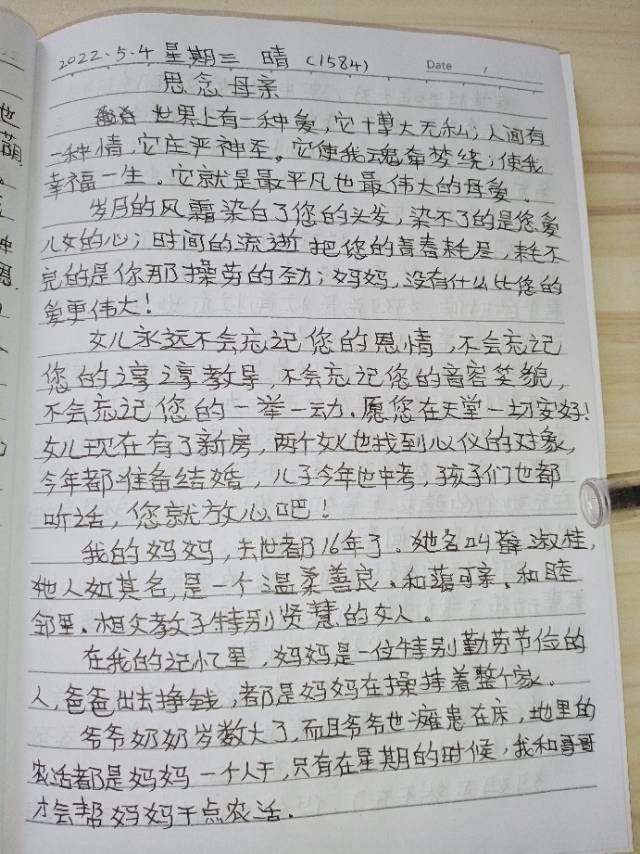 2022.5.4 星期三 晴 (1584)
Date /
思念母亲
世界上有一种爱,它博大无私;人间有
一种情,它庄严神圣。它使我魂牵梦绕;使我
幸福一生。它就是最平凡也最伟大的母爱。
岁月的风霜染白了您的头发,染不了的是您爱
儿女的心;时间的流逝把您的青春耗尽,耗不
完的是你那操劳的劲;妈妈,没有什么比您的
爱更伟大!
女儿永远不会忘记您的恩情,不会忘记
您的谆谆教导,不会忘记您的音容笑貌,
不会忘记您的一举一动.愿您在天堂一切安好!
女儿现在有了新房,两个女儿也找到心仪的对象,
今年都准备结婚,儿子今年也中考,孩子们也都
听话,您就放心吧!
我的妈妈,去世都16年了.她名叫薛淑桂,
她人如其名,是一个温柔善良.和蔼可亲.和睦
邻里.相夫教子特别贤慧的女人。
在我的记忆里,妈妈是一位特别勤劳节俭的
人,爸爸出去挣钱,都是妈妈在操持着整个家.
爷爷奶奶岁数大了,而且爷爷也瘫患在床,地里的
农活都是妈妈一个人干,只有在星期的时候,我和哥哥
才会帮妈妈干点农活.